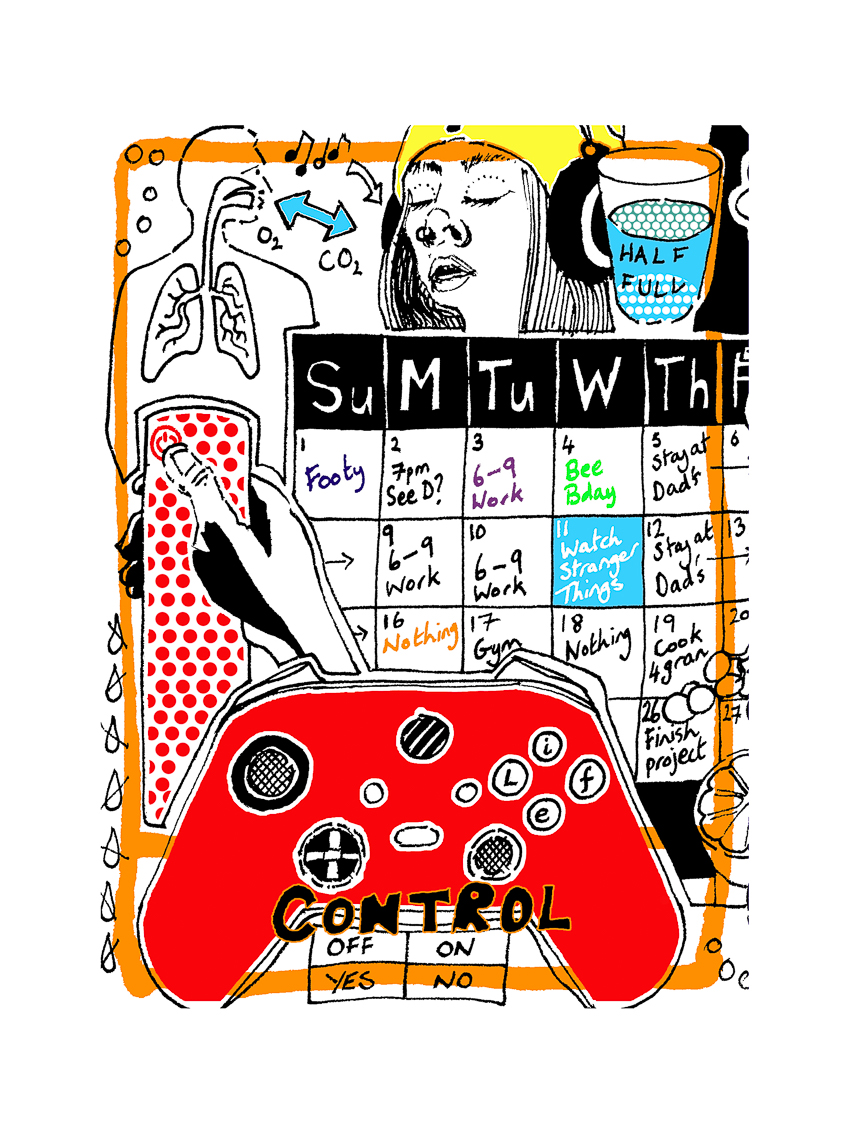 O₂
CO₂
HALF
FULL
Su M Tu W Th F
1
Footy
2
7pm
See D?
3
6-9
Work
4
Bee
Bday
5
Stay at
Dad's
6
9
6-9
Work
10
6-9
Work
11
Watch
Stranger
Things
12
Stay at
Dad's
13
16
Nothing
17
Gym
18
Nothing
19
Cook
4gran
20
26
Finish
project
27
L i f e
CONTROL
OFF ON
YES NO